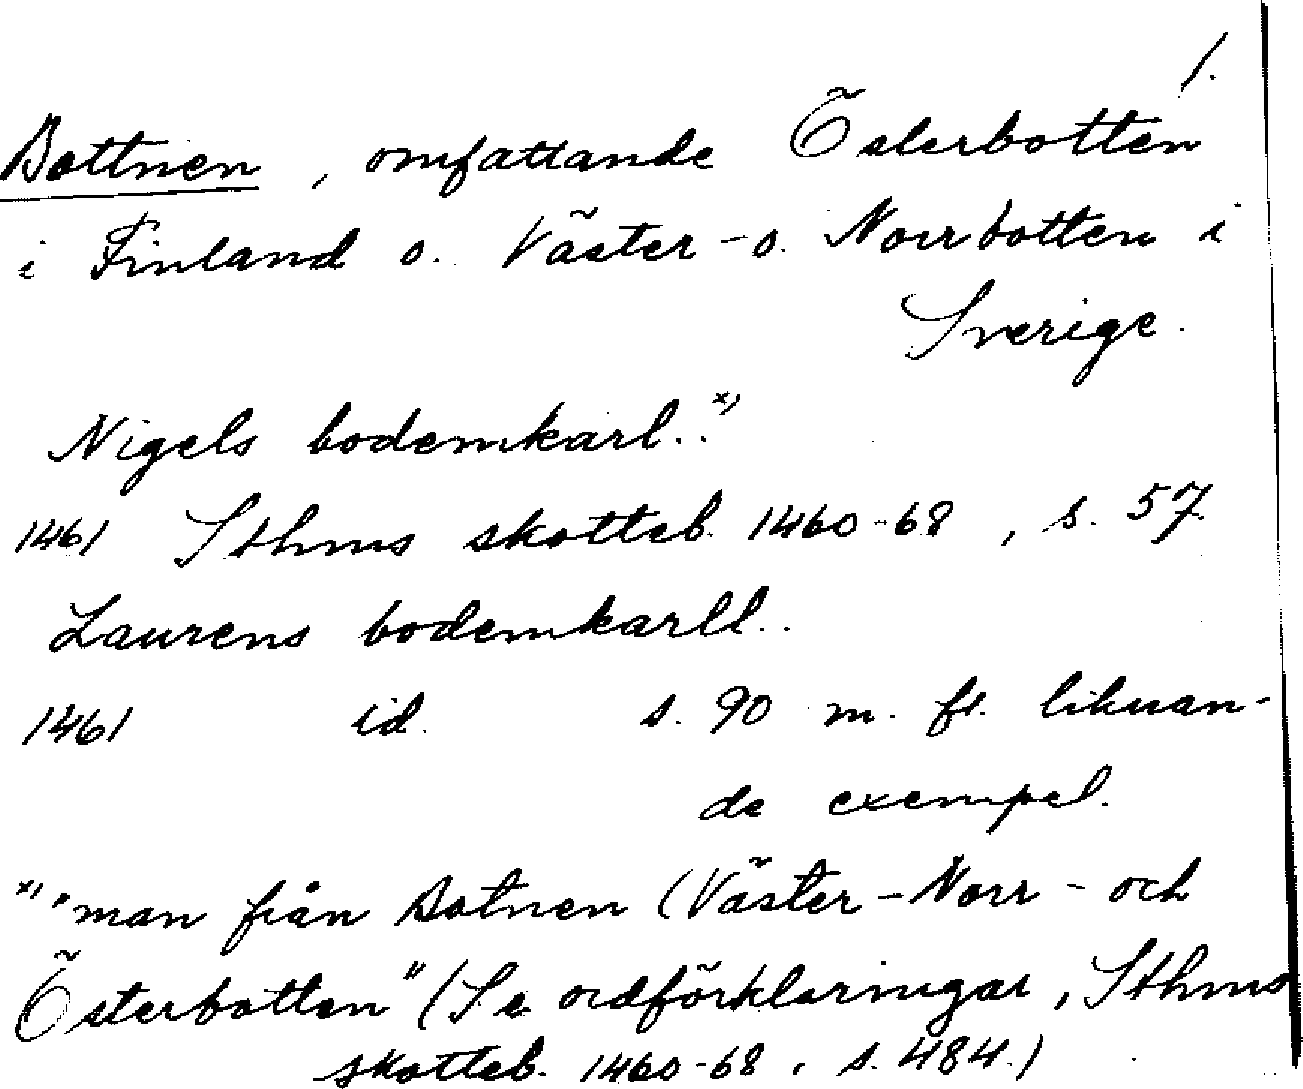 1.
Bottnen, omfattande Österbotten
i Finland o. Väster- o. Norrbotten i
Sverige.
Nigels bodemkarl..x)
1461 Sthms skotteb. 1460-68, s. 57.
Laurens bodemkarll..
1461 id. s. 90 m. fl. liknan-
de exempel.
x) "man från Botnen (Väster-Norr- och
Österbotten" (Se ordförklaringar, Sthms
skotteb. 1460-68, s. 484.)